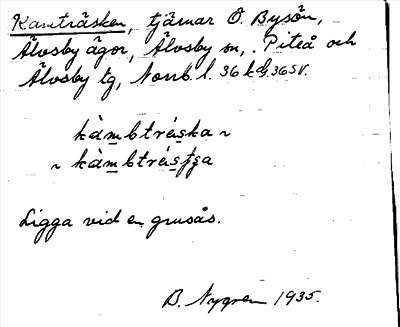 Kamträsken, tjärnar Ö. Bysön,
Älvsby ägor, Älvsby sn, Piteå och
Älvsby tg, Norrb. l. 36 kdg. 36 SV.
kàmbtréska ~
~ kàmbtrés
Ligga vid en grusås.
B. Nygren 1935.